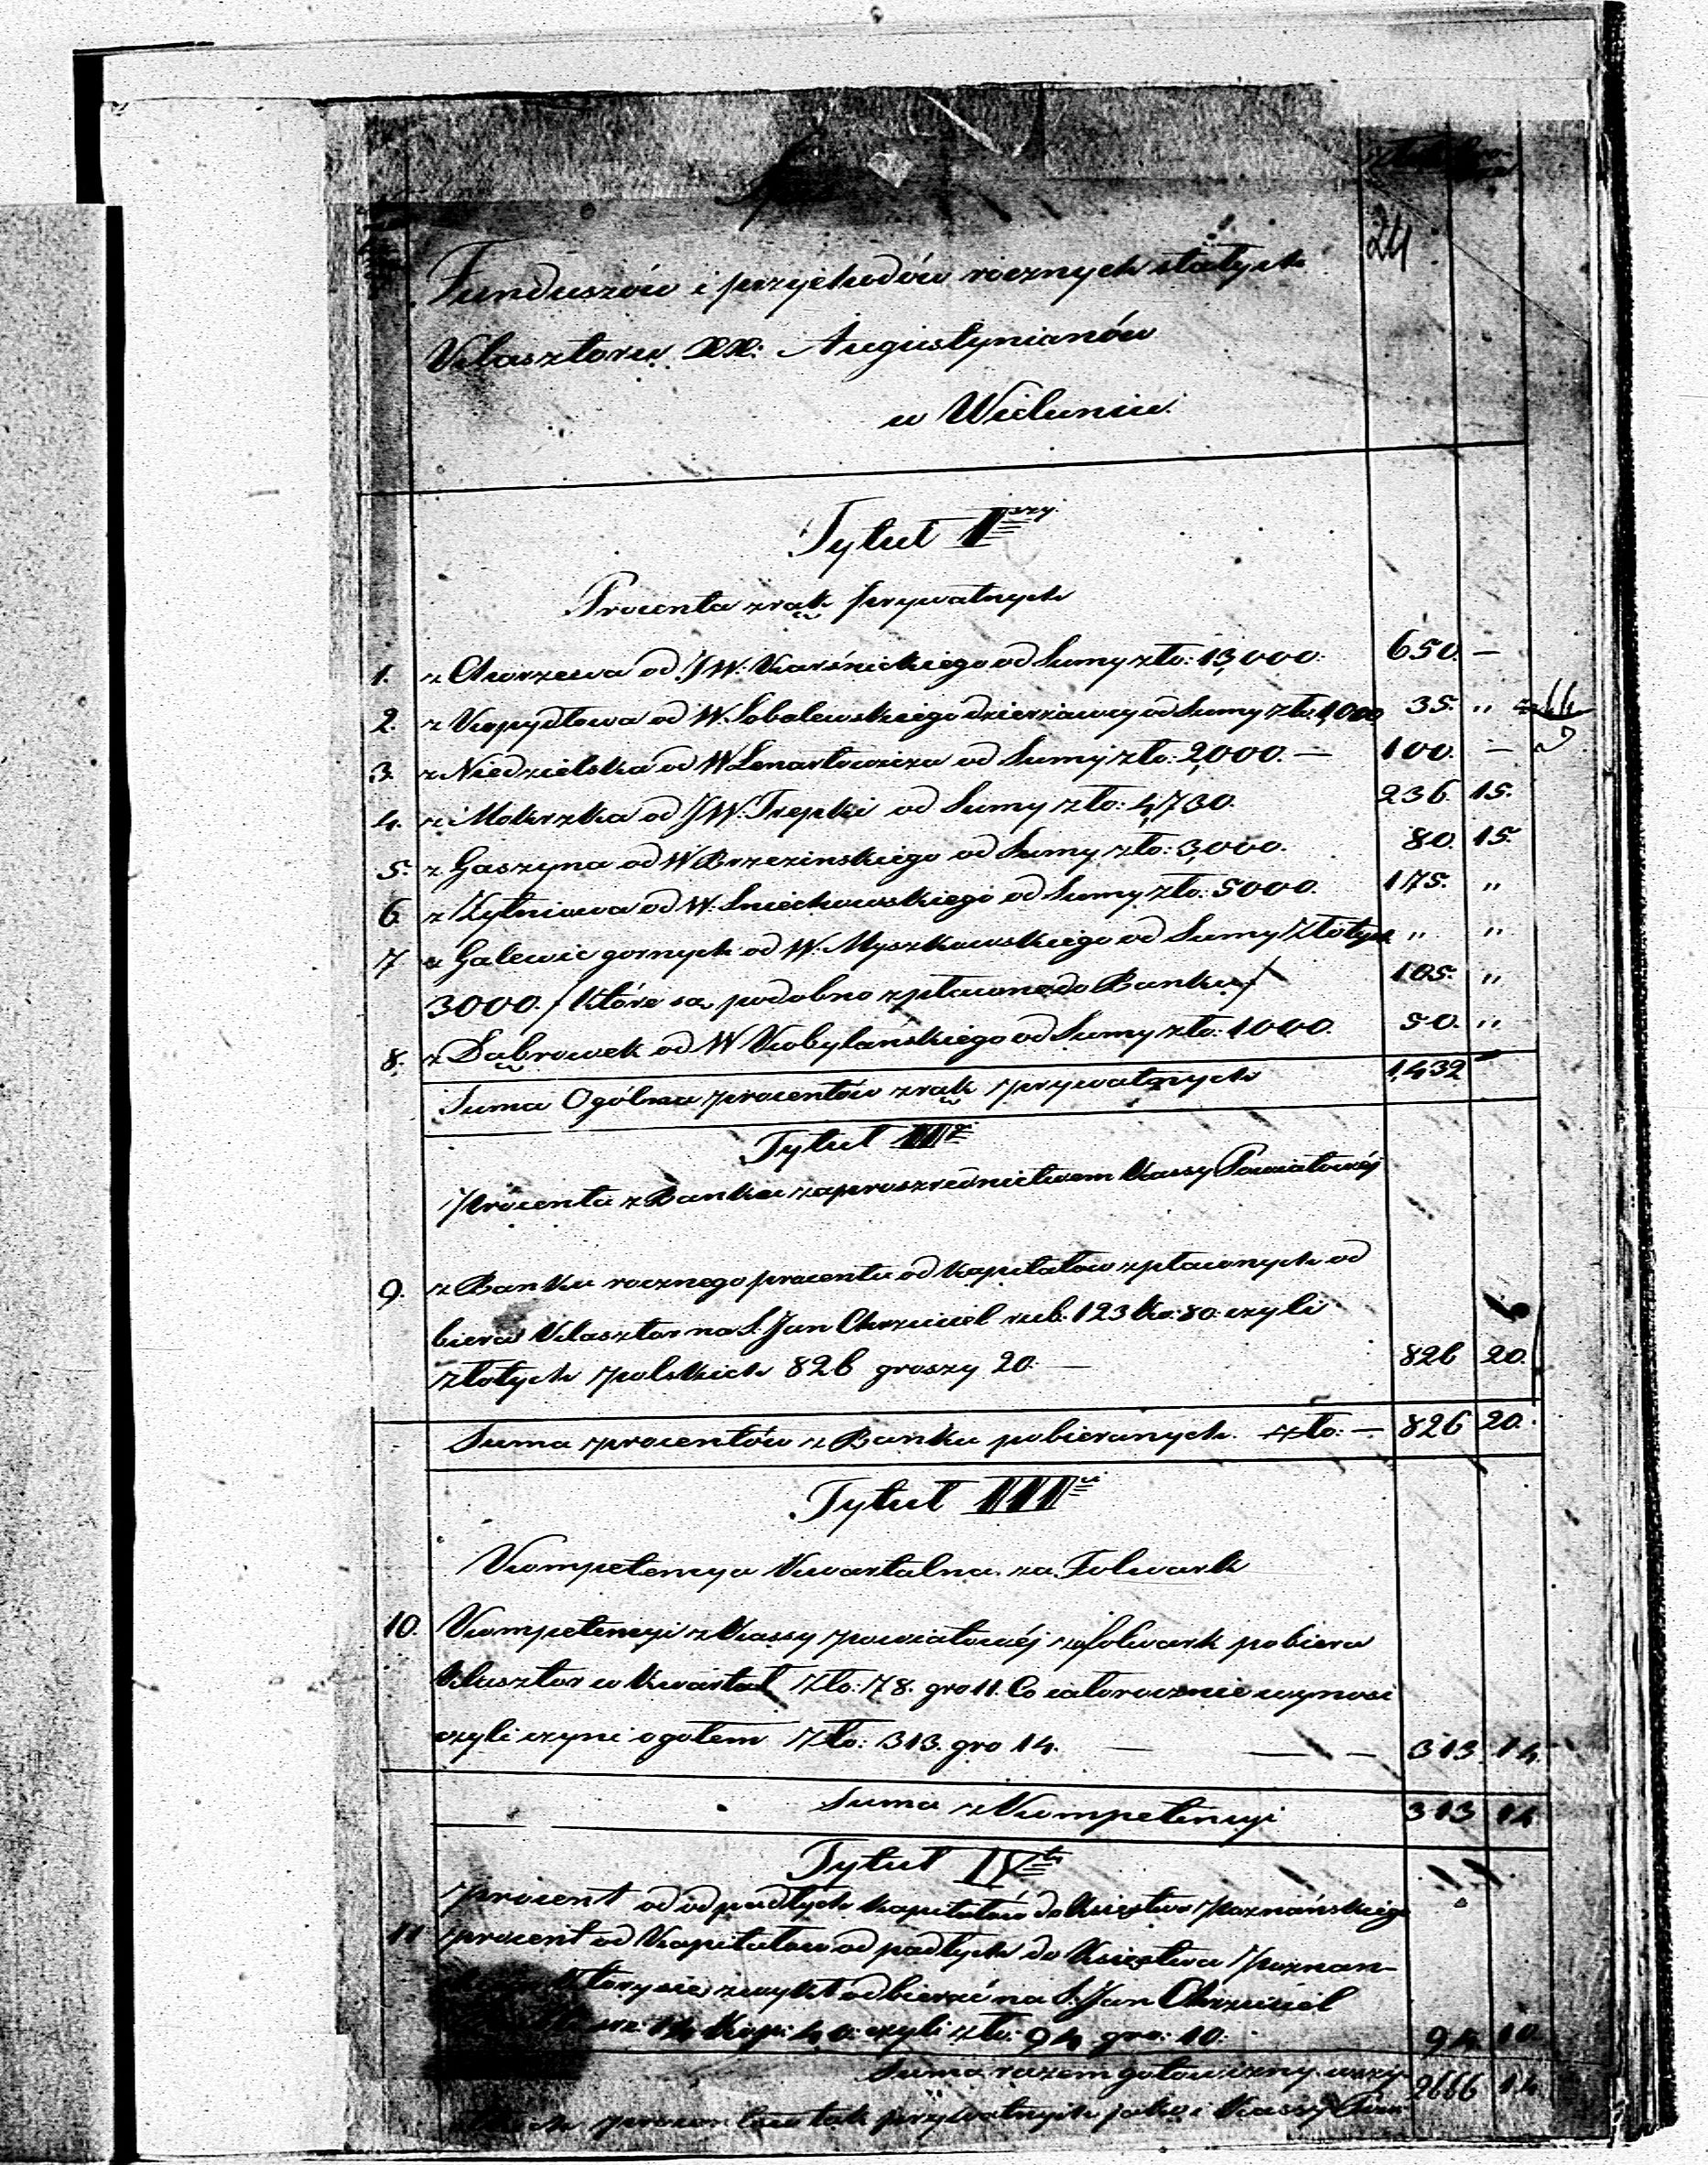 24
Funduszów i przychodów rocznych stałych
Klasztoru XX: Augustynianów
w Wieluniu.
Tytuł Iszy
Procenta z rąk prywatnych
1. z Chorzewa od JW. Karśnickiego od Sumy zło: 13,000. 650. —
2. z Kopydłowa od W. Sobolewskiego dzierżawcy od Sumy zło: 1,000 35. "
3. z Niedzielska od W Lenartowicza od Sumy zło: 2,000. — 100. —
4. z Mokrzka od JW. Trepki od Sumy zło: 4,730. 236. 15.
5. z Gaszyna od W Brzezinskiego od Sumy zło: 3,000. 80. 15.
6 z Żytniowa od W. Sniechowskiego od Sumy zło: 5000. 175. "
7 z Galewic gornych od W. Myszkowskiego od Sumy Złotych " "
3000. / które są podobno zpłacone do Banku / 105. "
8. z Dąbrowek od W Kobylańskiego od Sumy zło: 1000. 50. "
Suma Ogólna procentów z rąk prywatnych 1,432 —
Tytuł IIgi
Procenta z Banku za poszrednictwem Kassy Powiatowéj
9. z Banku rocznego procentu od kapitałow zpłaconych od
biera Klasztor na S. Jan Chrzciciel rub. 123 ko: 80. czyli
złotych polskich 826 groszy 20. — 826 20.
Suma procentów z Banku pobieranych. zło: — 826 20.
Tytuł IIIci
Kompetencya Kwartalna za Folwark
10. Kompetencyi z Kassy powiatowéj za folwark pobiera
Klasztor w Kwartał Zło: 78. gro 11. Co całorocznie wynosi
czyli czyni ogołem Zło: 313. gro 14. — — — 313 14.
Suma z Kompetencyi 313 14
Tytuł IVty
Procent od odpadłych kapitałów do Księstwa Poznańskiego
11 procent od Kapitałow odpadłych do Księstwa Poznan-
który się zwykł odbierać na S. Jan Chrzciciel
14 Kop: 40. czyli zło: 94 gro: 10. 94 10
Suma razem gotowizny wszy- 2666 14
procentow tak prywatnych jako i Kassy